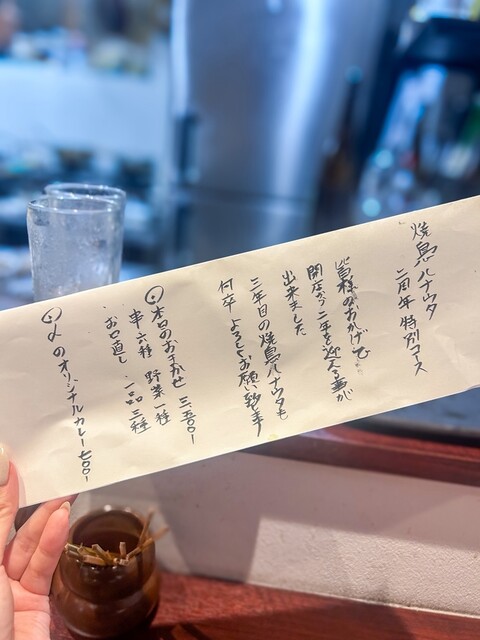 焼鳥ハナウタ
二周年 特別コース
皆様のおかげで
開店から二年を迎える事が
出来ました
三年目の焼鳥ハナウタも
何卒 よろしくお願い致します
本日のおまかせ 三、五〇〇-
串六種 野菜一種
お口直し 一品三種
〆のオリジナルカレー 七〇〇-